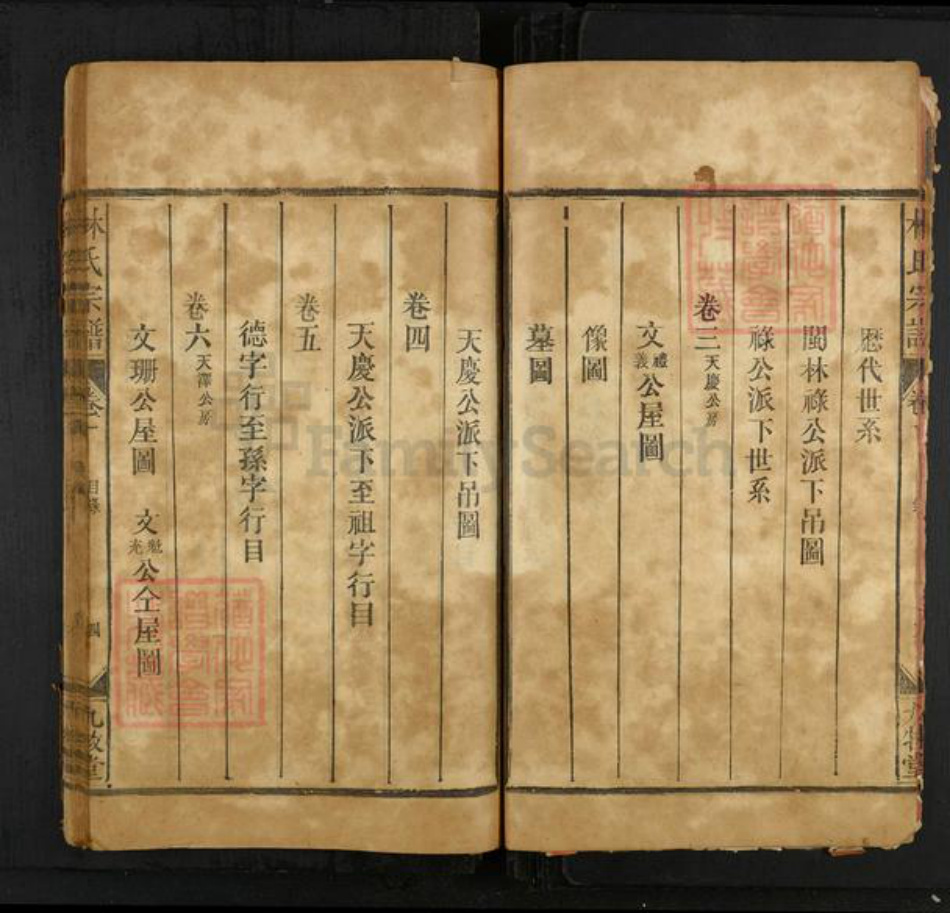 歷代世系
閩林祿公派下吊圖
祿公派下世系
卷三天慶公房
文禮義公屋圖
像圖
墓圖
天慶公派下吊圖
卷四
天慶公派下至祖字行目
卷五
德字行至孫字行目
卷六天澤公房
文珊公屋圖 文魁光公仝屋圖
林氏宗譜 卷一 目錄 四 九牧堂
FamilySearch